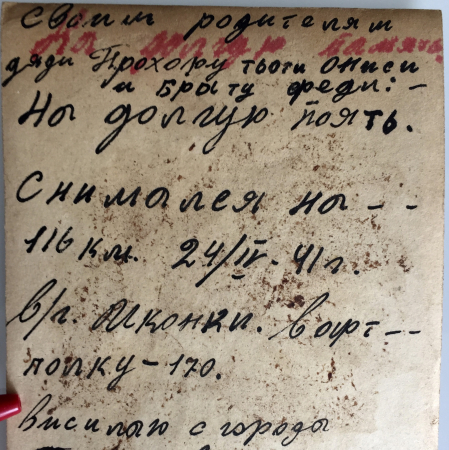 Своим родителям
На долгую память
дяди Прохору тьоти Ониси
и Брату феди: -
На долгую поять.
Снимался на - -
116 км. 24/IV - 41 г.
в/г. Иконки. в арт - -
полку - 170.
висилаю с города